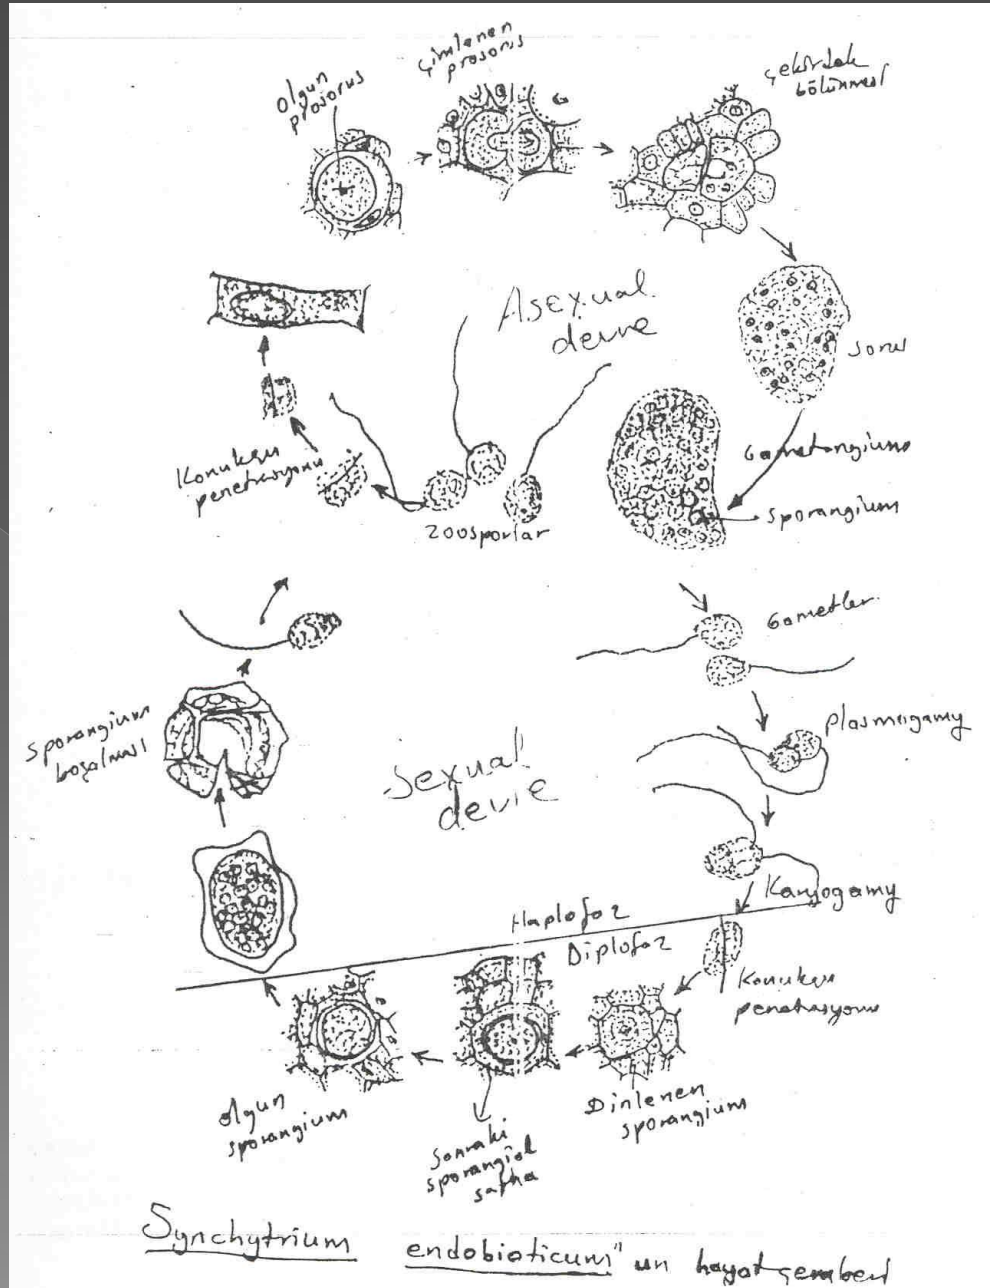 Olgun
prosorus
Çimlenen
prosorus
Çekirdek
bölünmesi
Asexual
devre
sorus
Gametangium
sporangium
Konukçu
penetrasyonu
zoosporlar
Gametler
Plasmogamy
sporangium
boşalması
Sexual
devre
Karyogamy
Haplofaz
Diplofaz
Konukçu
penetrasyonu
Dinlenen
sporangium
olgun
sporangium
Sonraki
sporangial
safha
Synchytrium endobioticum"un hayat çemberi